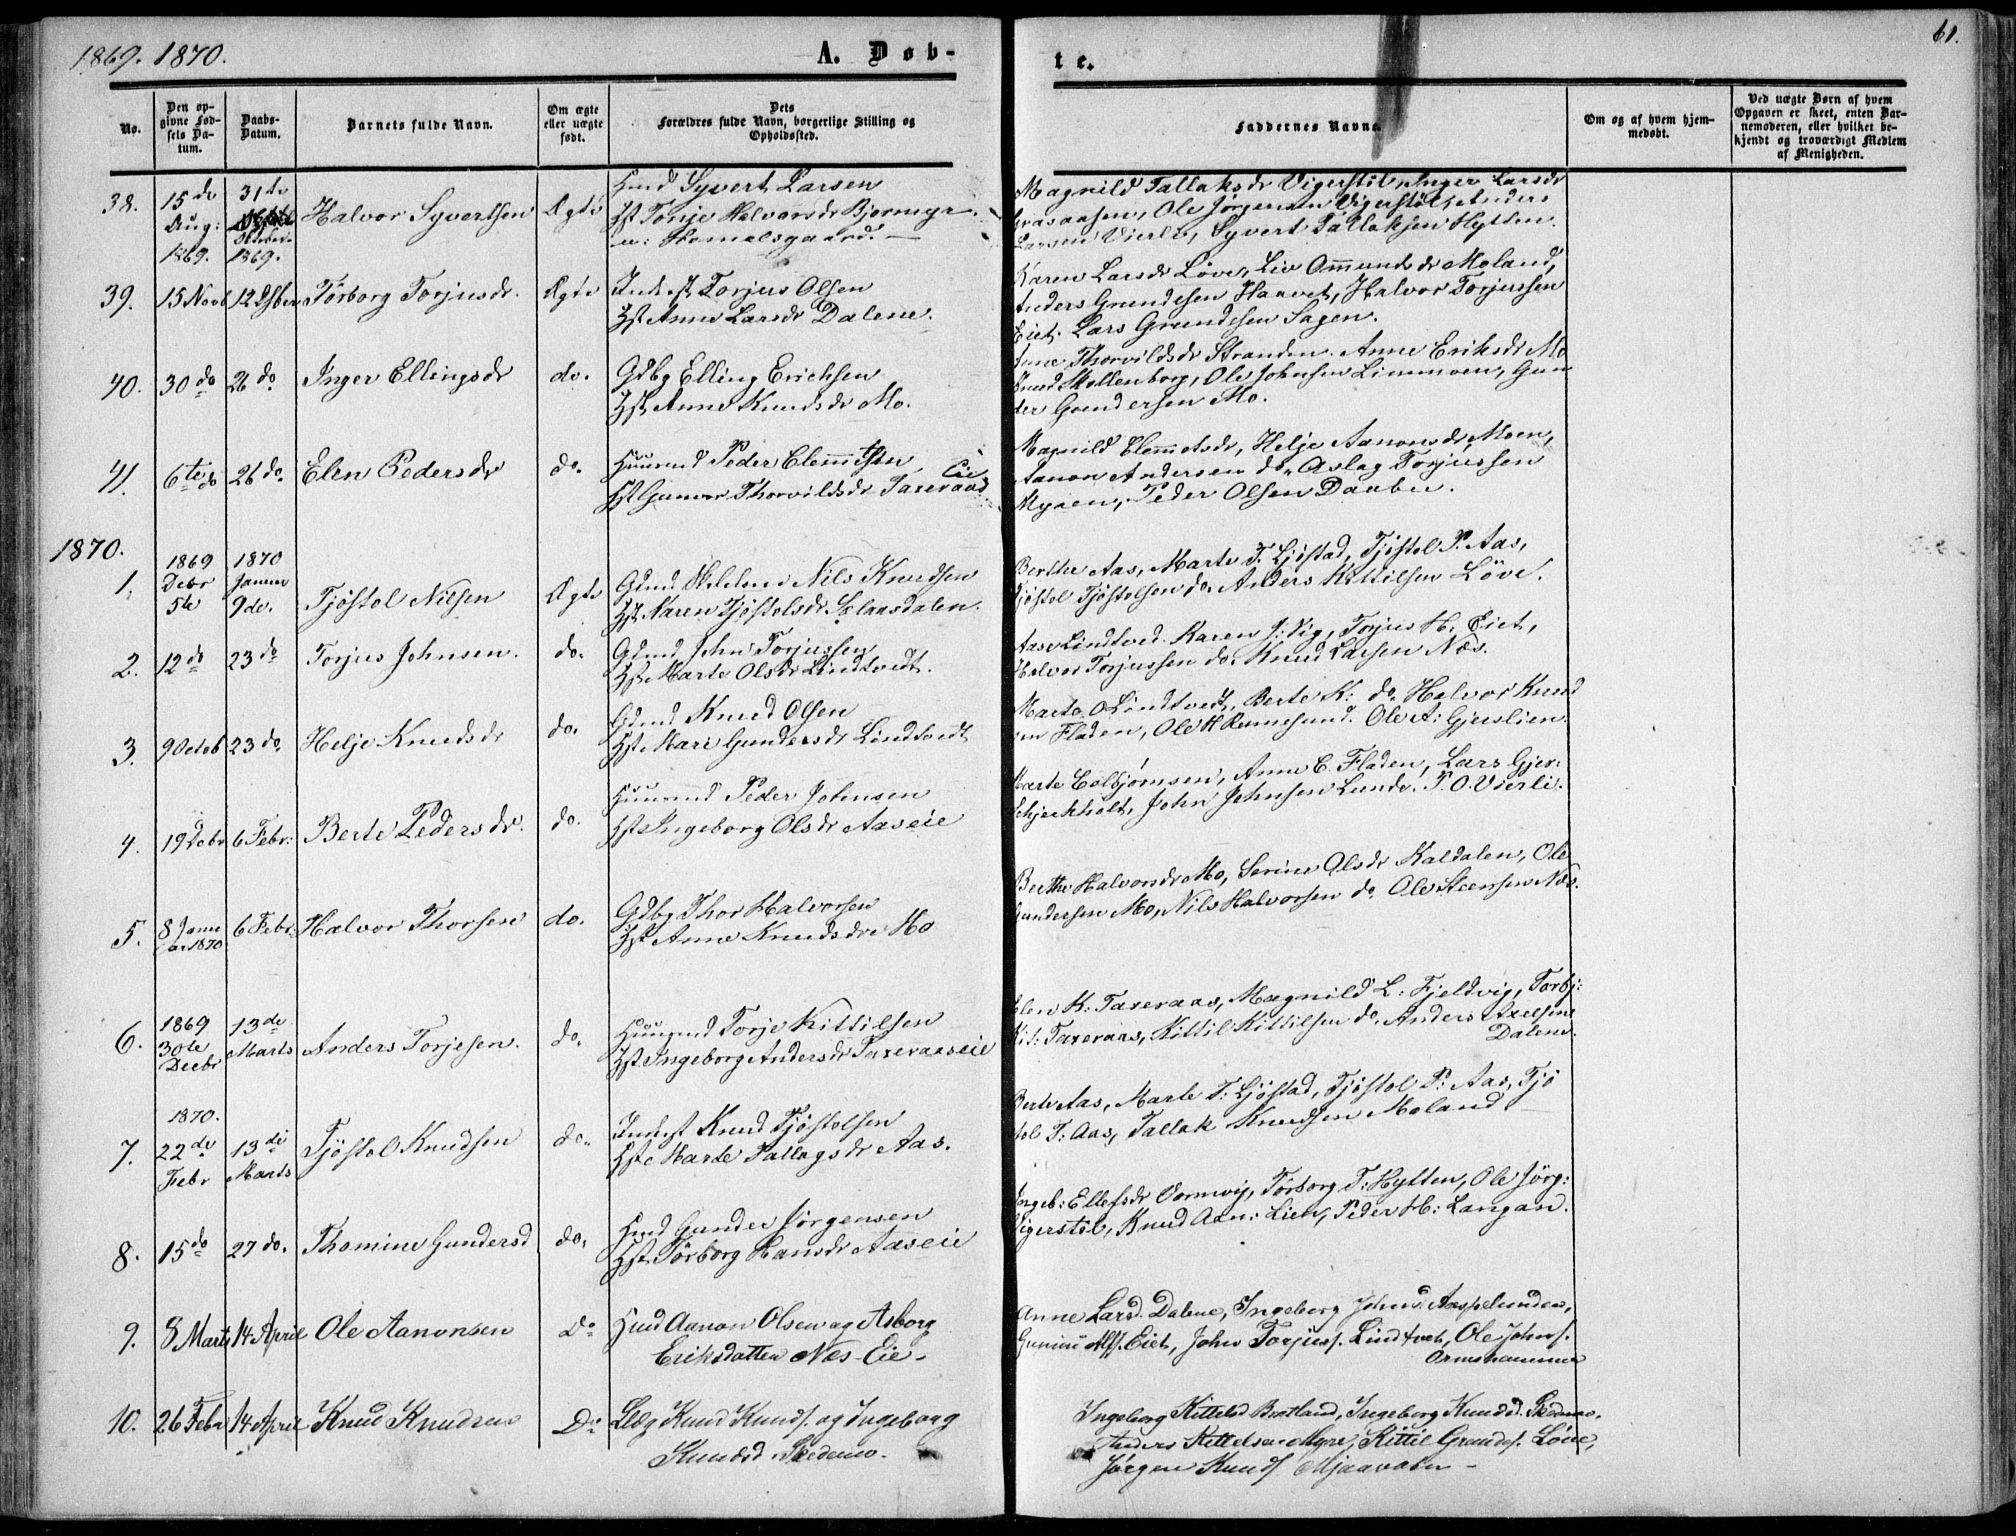 1869. 1870.
A. Døb-
te.
61.
No.
Den op-
givne Fød-
sels Da-
tum.
Daabs-
Datum.
Barnets fulde Navn.
Om ægte
eller uægte
født.
Dets
Forældres fulde Navn, borgerlige Stilling og
Opholdssted.
Faddernes Navne
Om og af hvem hjem-
medøbt.
Ved uægte Børn af hvem
Opgaven er skeet, enten Bar-
nemoderen, eller hvilket be-
kjendt og troværdigt Medlem
af Menigheden.
38.
15de
Aug:
1869.
31te
1869.
Halvor Syvertsen
Ægte
Hmd Syvert Larsen
Hst Tonje Halvorsdr Bjormyr
Magnild Tallaksdr Vigerstöl, Inger Larsdr
Grasaasen, Ole Jörgensen Vigerstöl, Anders
Larsen Vierli, Syvert Tallaksen Hytten.
39.
15 Novb
12 Dsber
Törborg Torjusdr.
Ægte
Inderst Torjus Olsen
Hst Anne Larsdr Dalene.
Karen Larsdr Löve, Liv Ommundsdr Moland,
Anders Grundesen Haavet, Halvor Torjussen
Eiet. Lars Grundesen Sagen.
40.
30 do
26 do
Inger Ellingsdr
do.
Gdbg Elling Erichsen
Hst Anne Knudsdr Mo.
Anne Thorvildsdr Stranden. Anne Eriksdr Mo
Knud Mollenborg, Ole Johnsen Limmoen, Gun
der Gundersen Mo.
41.
6te do
26 do.
Elen Pedersdr
do.
Huusmd Peder Clemmetsen
Hst Gunvor Thorvildsdr Taxeraas
Eie
Magnild Clemmetsdr, Helje Aanonsdr Moen,
Aanon Andersen do, Aslag Torjussen
Myren, Peder Olsen Daabu.
1870.
1.
1869
Debr
5te
1870
Januar
9de.
Tjöstol Nilsen
Ægte
Gmd Nils Knudsen
Hst Karen Tjöstolsdr Selaasdalen.
Berthe Aas, Marte T. Ljöstad, Tjöstol P. Aas,
Tjöstol Tjöstolsen do. Anders Kittilsen Löve.
2.
12 do
23 do
Torjus Johnsen.
do.
Gdmd John Torjussen
Hst Marte Olsdr Lindtvedt.
Aase Lindtved. Karen J: Vig, Torjus H. Eiet,
Halvor Torjussen do. Knud Larsen Næs.
3.
9 Octob
23 do.
Helje Knudsdr
do.
Gdmd Knud Olsen
Hst Mari Gundersdr Lindtvedt
Marte O Lindtvedt, Berte K: do. Halvor Knud
sen Fladen, Ole H Rennesund. Ole A: Gjeslien
4.
19 Debr
6 Febr:
Berte Pedersdr.
do.
Huusmd Peder Johnsen
Hst Ingeborg Olsdr Aaseie
Marte Esbjörnsen, Anne E. Fladen, Lars Gjer:
John Johnsen Lunde. P. O. Vierli.
5.
8 Janu
ar 1870
6 Febr
Halvor Thorsen
do.
Gdbg Thor Halvorsen
Hst Anne Knudsdr Mo
Berthe Halvorsdr Mo, Serine Olsdr Kaldalen, Ole
Gundersen Mo, Nils Halvorsen do. Ole Steensen Næs.
6.
1869
30te
Decbr
13de
Marts
Anders Torjesen.
do.
Huusmd Torje Kittilsen
Hst Ingeborg Andersdr Taxeraaseie
Elen K: Taxeraas, Magnild L: Fjeldvig, Torbj:
Kit: Taxeraas, Kittil Kittilsen do. Anders Axelsen
Dalene.
7.
1870.
22de
Febr
13de
Marts
Tjöstol Knudsen
do.
Inderst Knud Tjöstolsen
Hst Marte Tallagsdr Aas.
Berte Aas, Marte T: Ljöstad, Tjöstol P: Aas, Tjö
stol T: Aas, Tallak Knudsen Moland
8.
15 do
27 do.
Thomine Gundersd
do.
Hmd Gunder Jörgensen
Hst Törborg Hansdr Aaseie
Ingeb: Ellefsdr Vormvig, Törborg T: Hytten, Ole Jörg:
Vigerstöl, Knud Aan: Lien, Peder H: Langan.
9.
8 Marts
14 April
Ole Aanonsen
Do
Hmd Aanon Olsen og Asborg
Eriksdatter Næs Eie.
Anne Larsd. Dalene, Ingeborg Johnsd Aaspelunden,
Eiet, John Torjuss. Lindtvet, Ole Johns.
Ormshammer
10.
26 Febr
14 April
Knud Knudsen
Do
Knud Knuds. og Ingeborg
Knudsd. Skedemo.
Ingeborg Kittelsd Bratland, Ingeborg Knudsd. Skedmo.
Anders Kittelsen Myre, Kittil Grundes. Löve,
Jørgen Knuds Mjaavatn